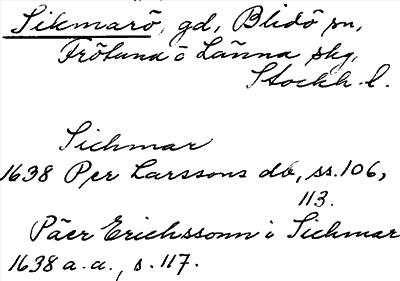 Sikmarö, gd, Blidö sn,
Frötuna o Länna skg,
Stockh. l.
Sichmar
1638 Per Larssons db, ss. 106,
113.
Päer Erichssonn i Sichmar
1638 a.a., s. 117.